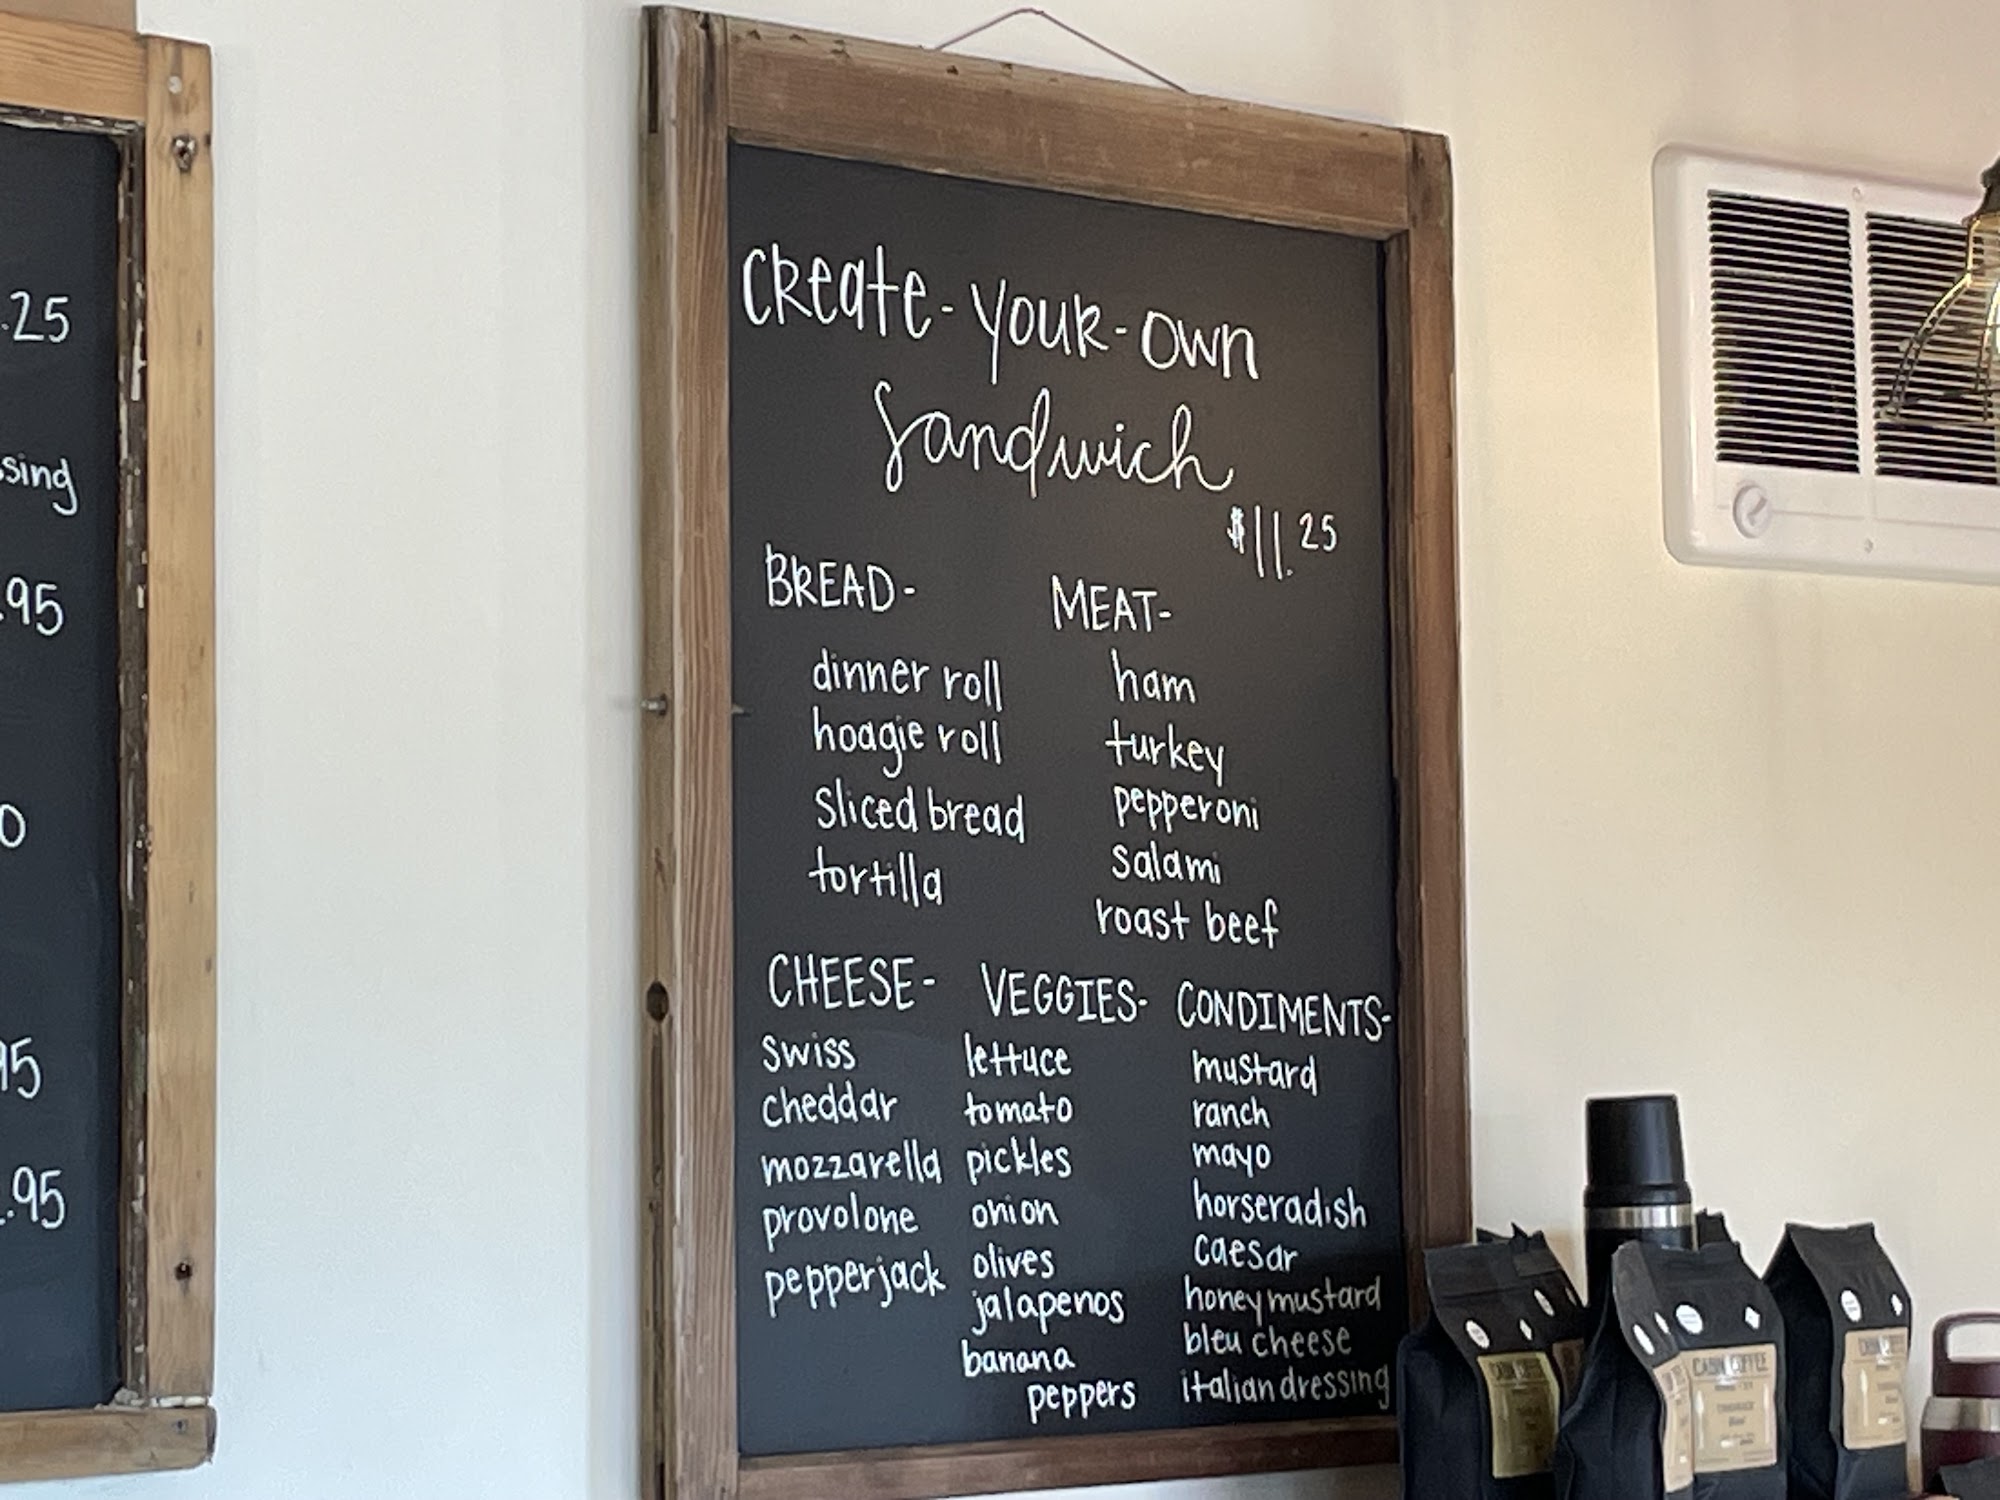 .25
sing
.95
0
95
.95
Create-Your-Own
Sandwich
$11.25
BREAD-
dinner roll
hoagie roll
sliced bread
tortilla
MEAT-
ham
turkey
pepperoni
salami
roast beef
CHEESE-
swiss
cheddar
mozzarella
provolone
pepperjack
VEGGIES-
lettuce
tomato
pickles
onion
olives
jalapenos
banana
peppers
CONDIMENTS-
mustard
ranch
mayo
horseradish
caesar
honey mustard
bleu cheese
italian dressing
CABIN COFFEE